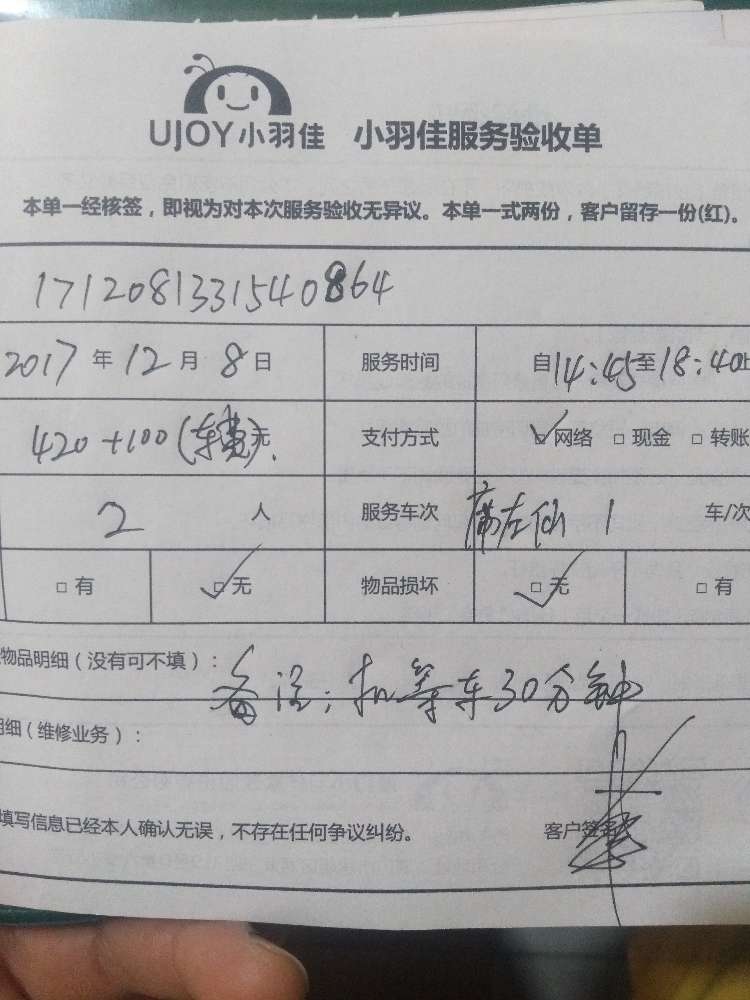 UJOY小羽佳 小羽佳服务验收单
本单一经核签，即视为对本次服务验收无异议。本单一式两份，客户留存一份(红)。
1712081331540864
2017年12月8日 服务时间 自14:45至18:40止
420+100(车费)元 支付方式 ☑网络 □现金 □转账
2人 服务车次 1 车/次
□有 ☑无 物品损坏 ☑无 □有
物品明细（没有可不填）：
备注：扣等车30分钟
明细（维修业务）：
填写信息已经本人确认无误，不存在任何争议纠纷。 客户签名